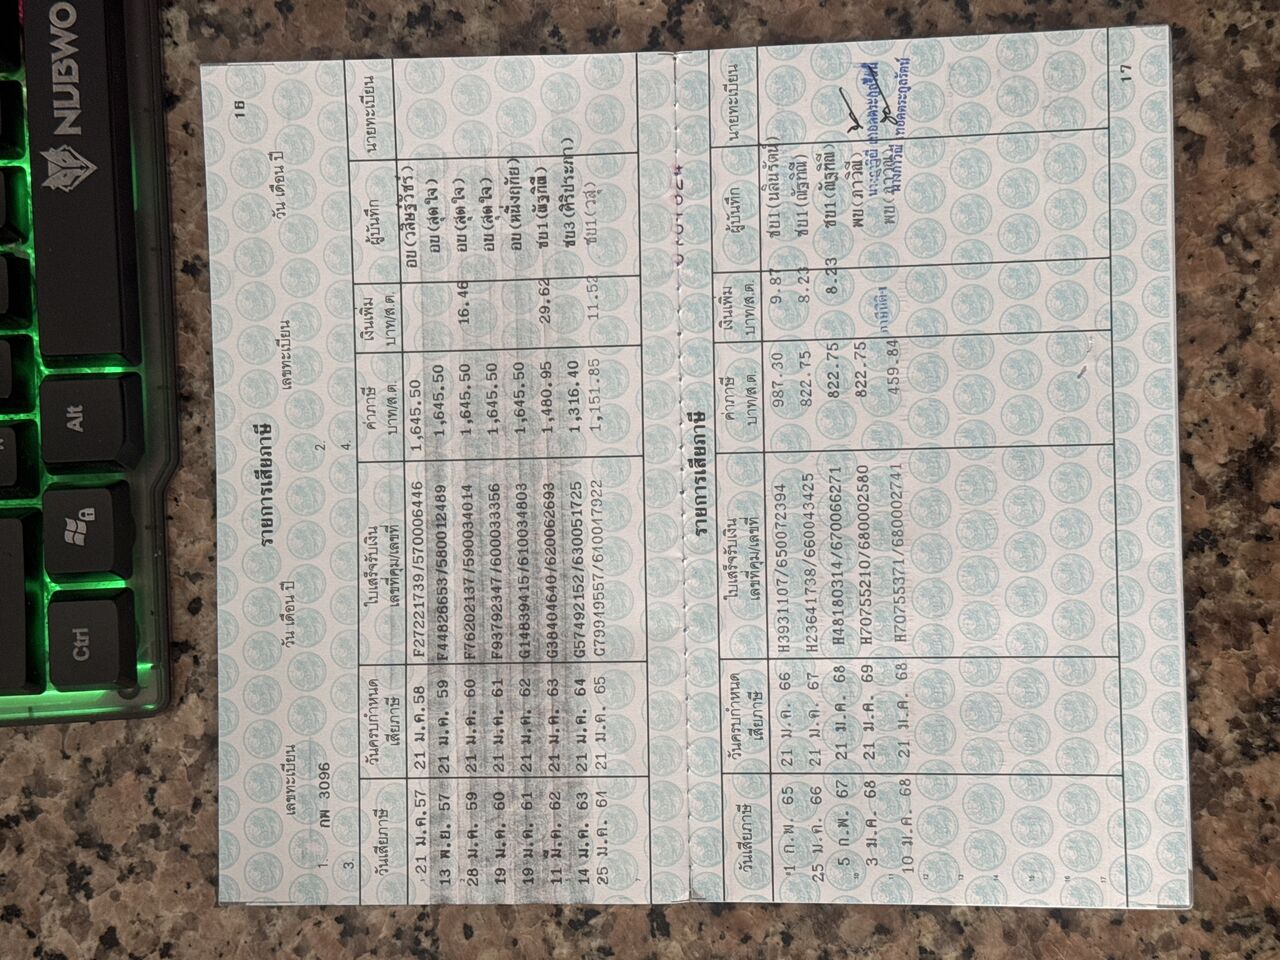 NUBWO
Alt
Ctrl
16
รายการเสียภาษี
เลขทะเบียน วัน เดือน ปี เลขทะเบียน วัน เดือน ปี
1. กพ 3096 2.
3. 4.
วันเสียภาษี วันครบกำหนดเสียภาษี ใบเสร็จรับเงิน เลขที่คุม/เลขที่ ค่าภาษี บาท/ส.ต. เงินเพิ่ม บาท/ส.ต. ผู้บันทึก นายทะเบียน
21 ม.ค.57 21 ม.ค.58 F27221739/570006446 1,645.50 อบ(วสิษฐ์วัชร์)
13 พ.ย. 57 21 ม.ค. 59 F44828653/580012489 1,645.50 อบ(สุดใจ)
28 ม.ค. 59 21 ม.ค. 60 F76202137/590034014 1,645.50 16.46 อบ(สุดใจ)
19 ม.ค. 60 21 ม.ค. 61 F93792347/600033356 1,645.50 อบ(สุดใจ)
19 ม.ค. 61 21 ม.ค. 62 G14839415/610034803 1,645.50 อบ(หนึ่งฤทัย)
11 มี.ค. 62 21 ม.ค. 63 G38404640/620062693 1,480.95 29.62 ชบ1(ณัฐทิณี)
14 ม.ค. 63 21 ม.ค. 64 G57492152/630051725 1,316.40 ชบ3(ศิริประภา)
25 ม.ค. 64 21 ม.ค. 65 G79949557/640047922 1,151.85 11.52 ชบ1(วสุ)
รายการเสียภาษี
วันเสียภาษี วันครบกำหนดเสียภาษี ใบเสร็จรับเงิน เลขที่คุม/เลขที่ ค่าภาษี บาท/ส.ต. เงินเพิ่ม บาท/ส.ต. ผู้บันทึก นายทะเบียน
1 ก.พ. 65 21 ม.ค. 66 H3931107/650072394 987.30 9.87 ชบ1(นลินรัตน์)
25 ม.ค. 66 21 ม.ค. 67 H23641738/660043425 822.75 8.23 ชบ1(ณัฐทิณี)
5 ก.พ. 67 21 ม.ค. 68 H48180314/670066271 822.75 8.23 ชบ1(ณัฐทิณี)
3 ม.ค. 68 21 ม.ค. 69 H70755210/680002580 822.75 พบ(ภาวิณี)
10 ม.ค. 68 21 ม.ค. 68 H70755371/680002741 459.84 พบ(ภาวิณี)
17